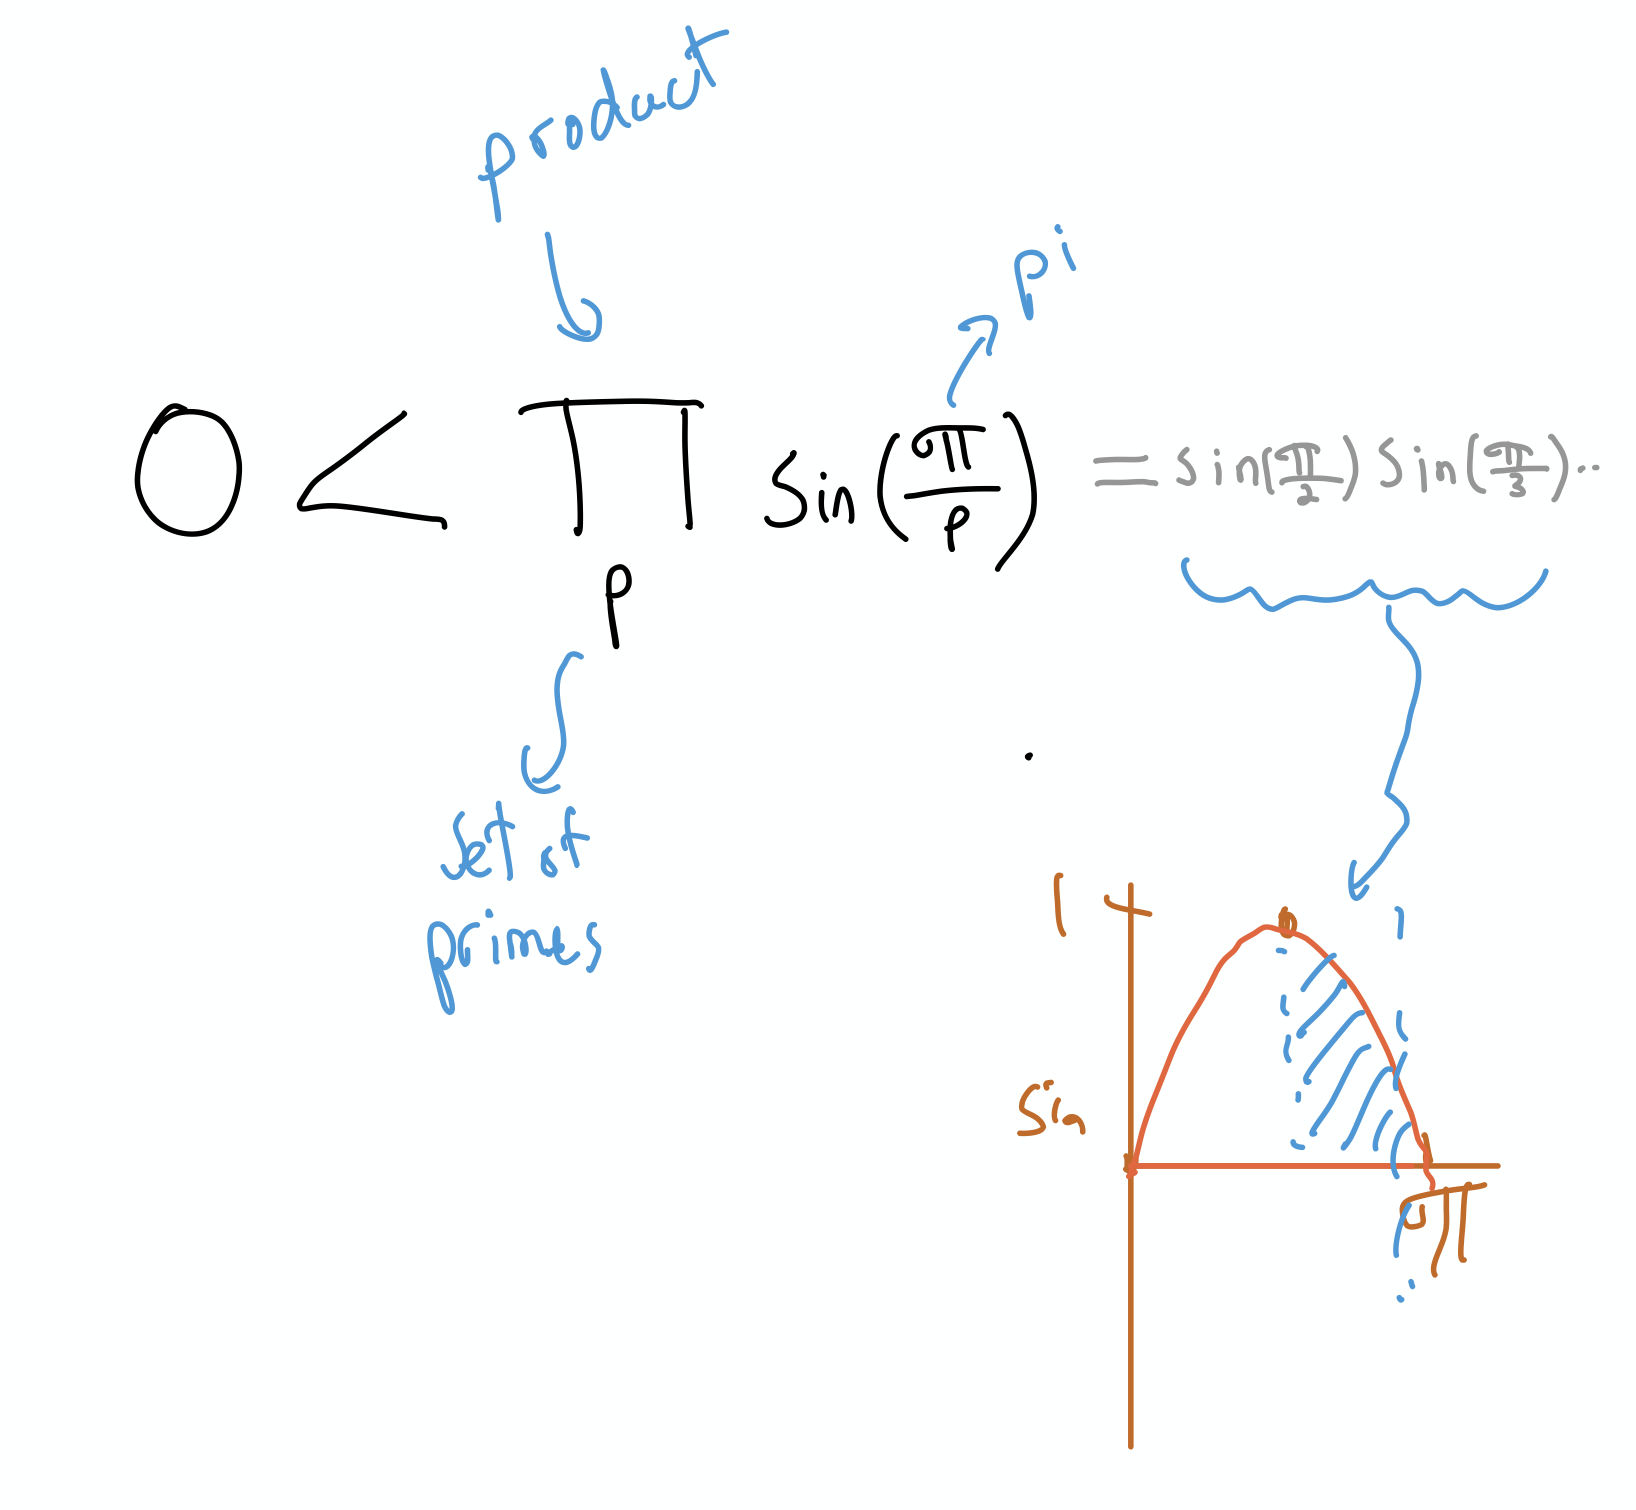 product
pi
0 < ∏ sin(π/p) = sin(π/2) sin(π/3)...
p
set of
primes
1
sin
π